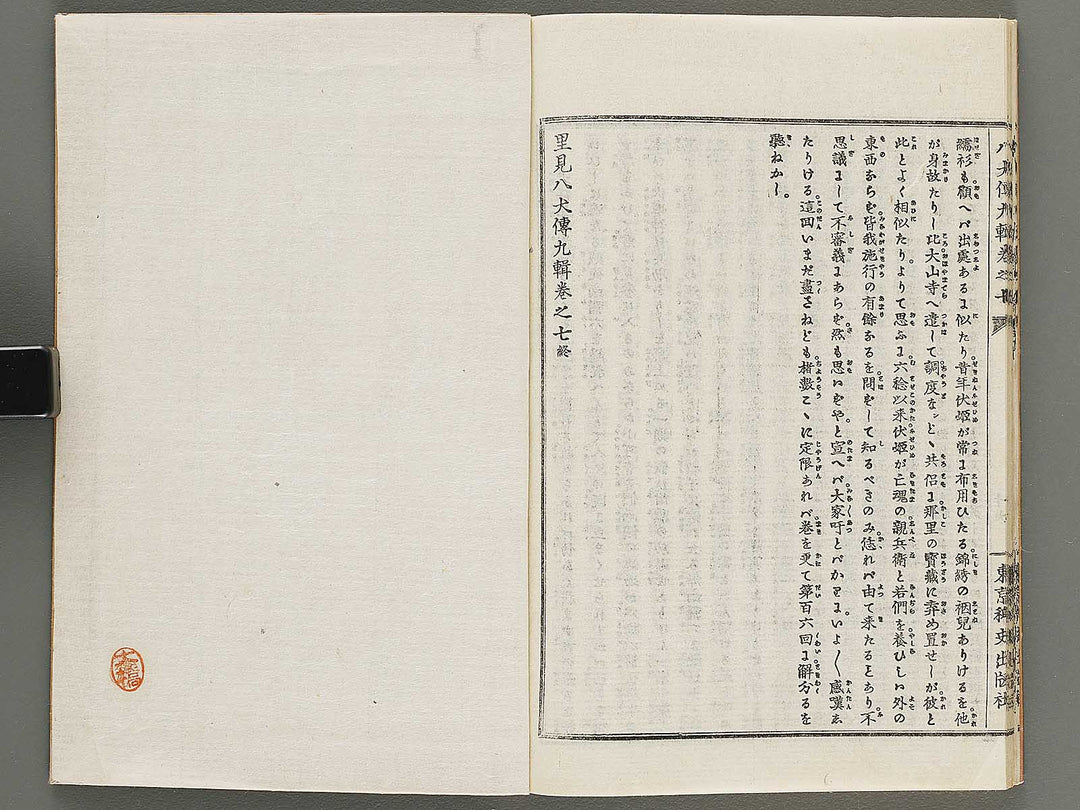 八犬傳九輯卷之七
東京稗史出版社
襦衫も顧へバ出處あるに似たり昔年伏姫が常に布用ひたる錦綉の裀兒ありけるを他
が身故たりし比大山寺へ遣して調度など、共侶に那里の寳藏に弆め置せしが彼と
此とよく相似たりよりて思ふに六稔以来伏姫が亡魂の親兵衛と若們を養ひしハ外の
東西ならず皆我施行の有餘なるを問ずして知るべきのみ恁れバ由て来たるよしあり不
思議にして不審義にあらず然も思いずやと宣へバ大家吁とバかりにいよ〱感嘆
たりける這回いまだ盡さねども楮數こゝに定限あれバ巻を更て第百六回に解分るを
聽ねかし。
里見八犬傳九輯巻之七終